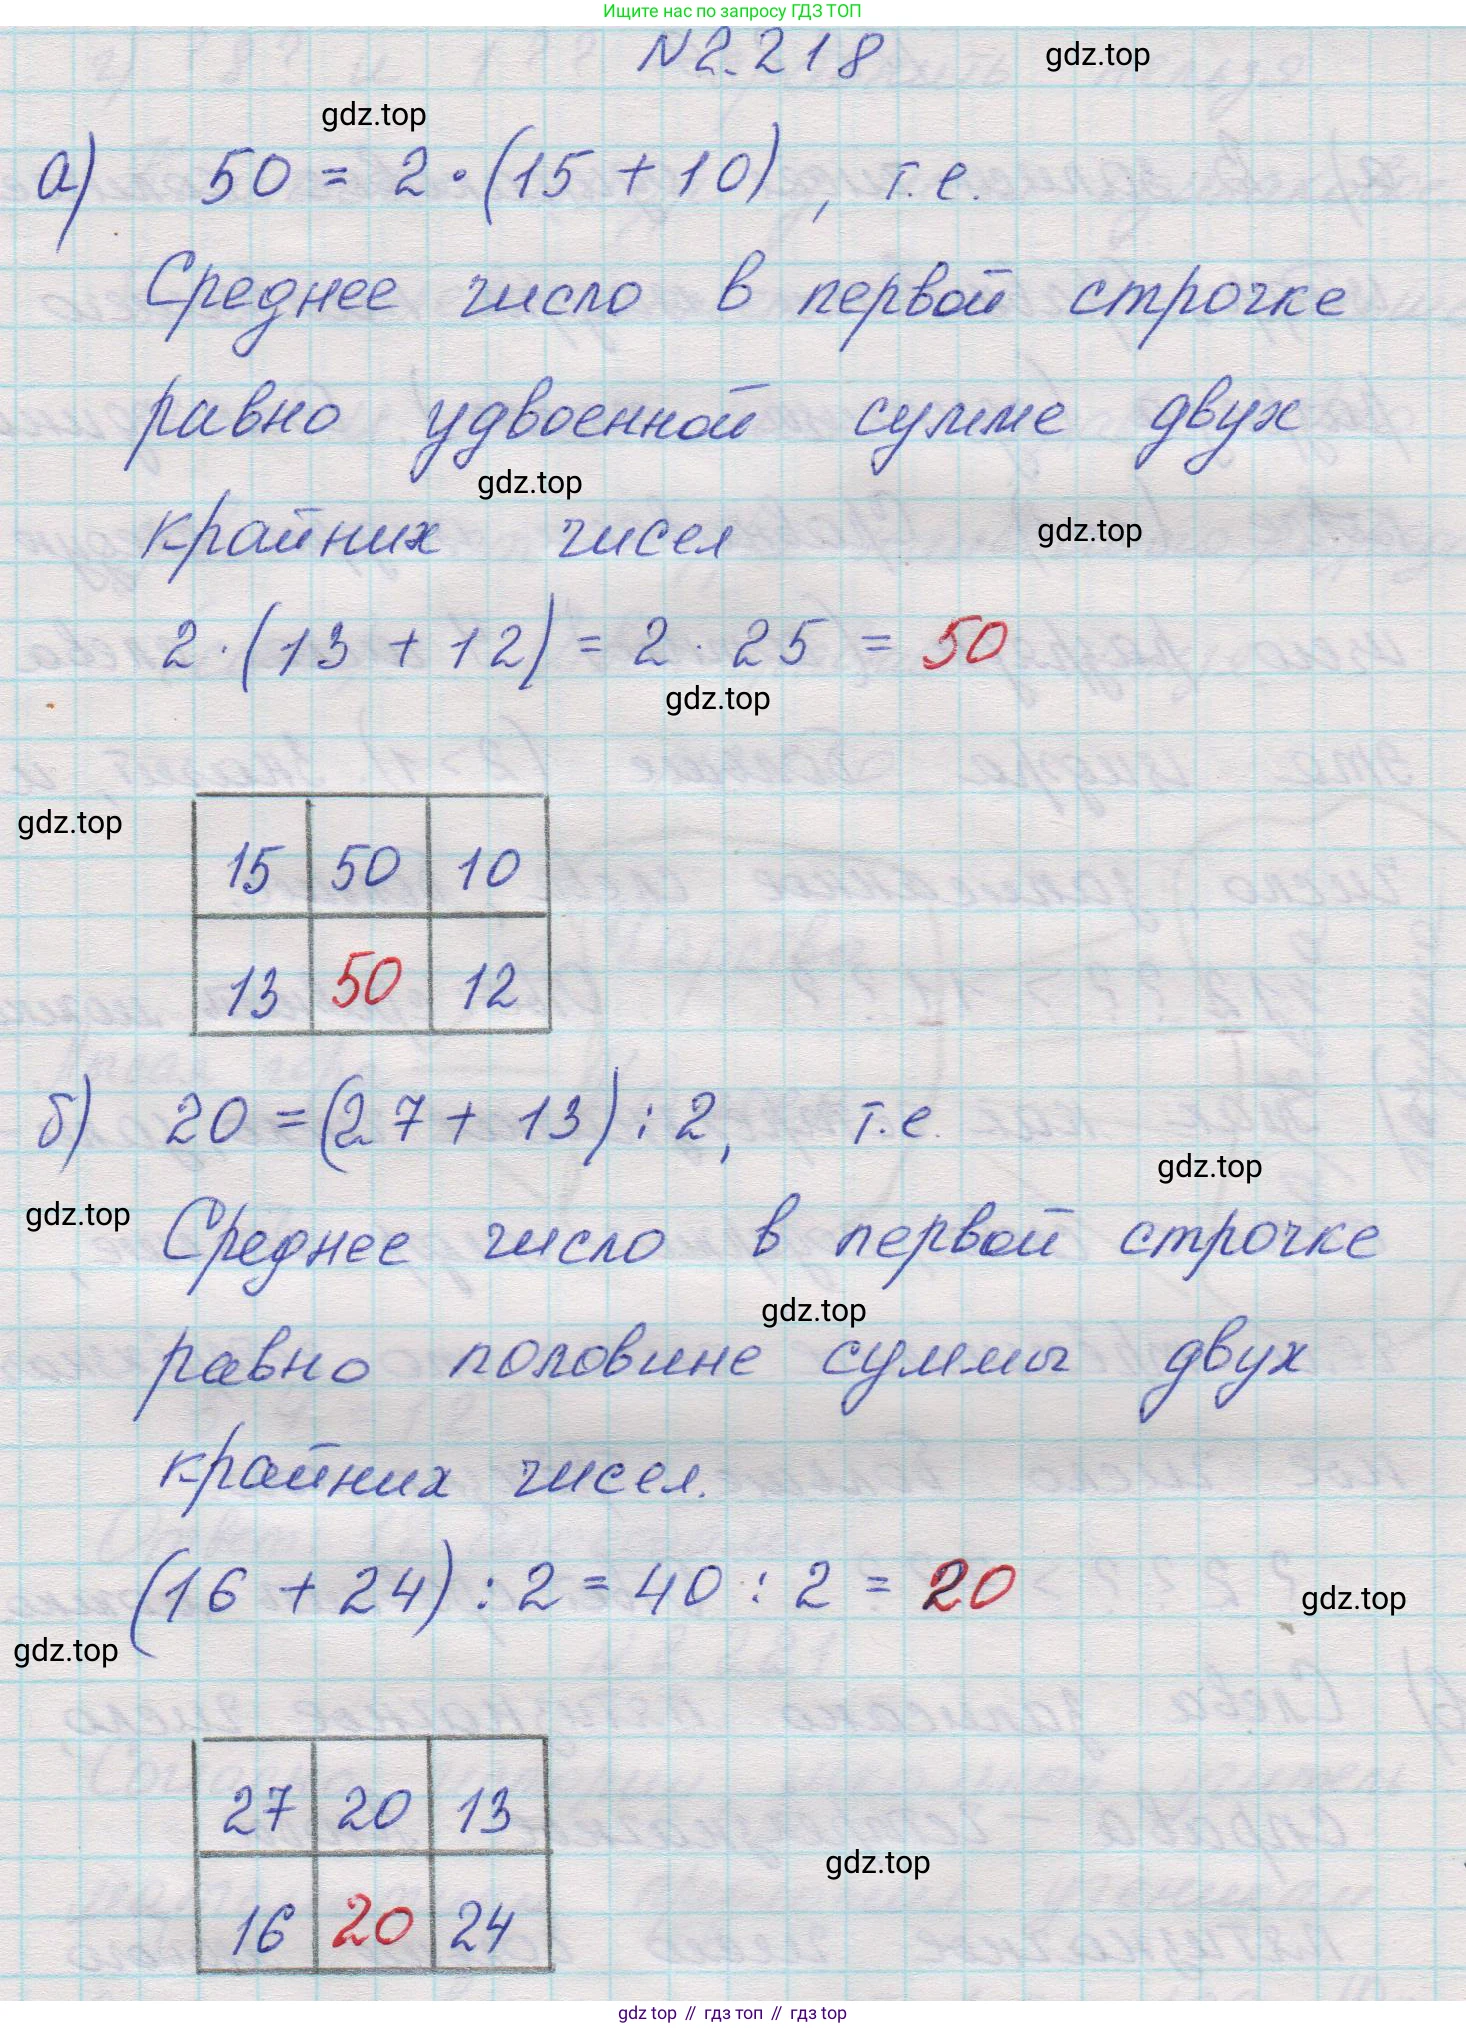 Ищите нас по запросу ГДЗ ТОП
N 2.218
gdz.top
gdz.top
а) 50 = 2 · (15 + 10), т.е.
Среднее число в первой строчке
равно удвоенной сумме двух
gdz.top
крайних чисел
gdz.top
2 · (13 + 12) = 2 · 25 = 50
gdz.top
gdz.top
15 50 10
13 50 12
б) 20 = (27 + 13) : 2, т.е.
gdz.top
gdz.top
Среднее число в первой строчке
gdz.top
равно половине суммы двух
крайних чисел.
(16 + 24) : 2 = 40 : 2 = 20
gdz.top
gdz.top
27 20 13
gdz.top
16 20 24
gdz top // гдз топ // гдз top